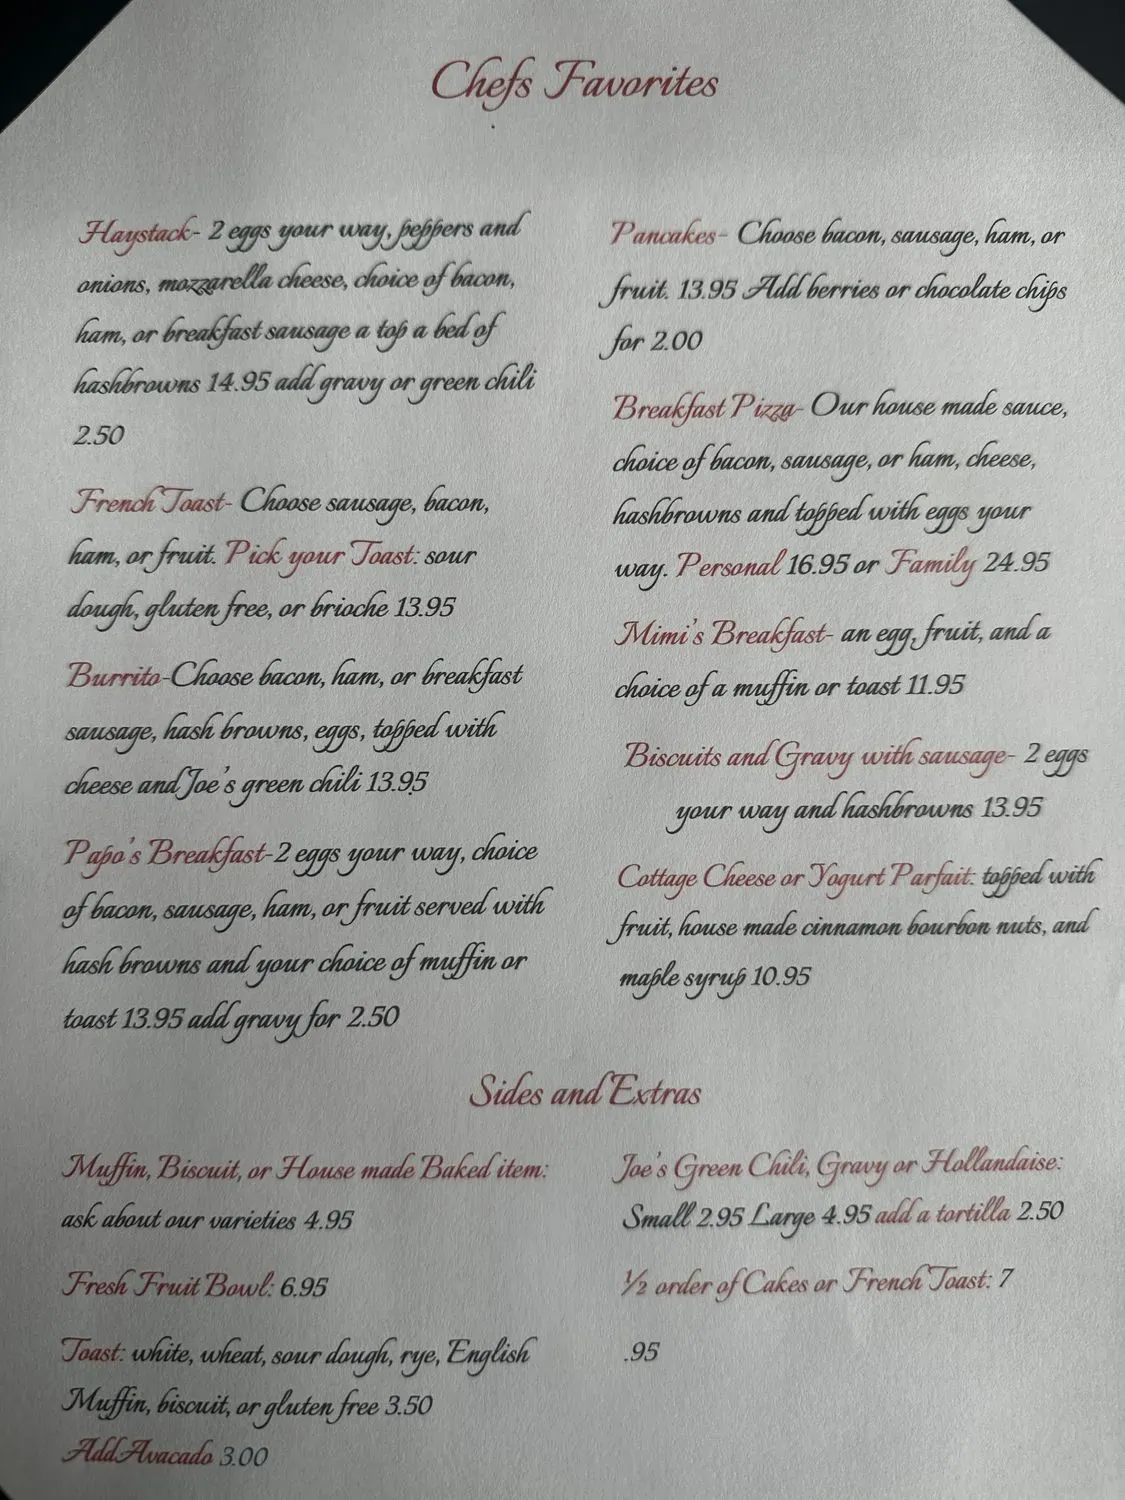 Chefs Favorites
Haystack- 2 eggs your way, peppers and
onions, mozzarella cheese, choice of bacon,
ham, or breakfast sausage a top a bed of
hashbrowns 14.95 add gravy or green chili
2.50
French Toast- Choose sausage, bacon,
ham, or fruit. Pick your Toast: sour
dough, gluten free, or brioche 13.95
Burrito-Choose bacon, ham, or breakfast
sausage, hash browns, eggs, topped with
cheese and Joe's green chili 13.95
Papo's Breakfast-2 eggs your way, choice
of bacon, sausage, ham, or fruit served with
hash browns and your choice of muffin or
toast 13.95 add gravy for 2.50
Pancakes- Choose bacon, sausage, ham, or
fruit. 13.95 Add berries or chocolate chips
for 2.00
Breakfast Pizza- Our house made sauce,
choice of bacon, sausage, or ham, cheese,
hashbrowns and topped with eggs your
way. Personal 16.95 or Family 24.95
Mimi's Breakfast- an egg, fruit, and a
choice of a muffin or toast 11.95
Biscuits and Gravy with sausage- 2 eggs
your way and hashbrowns 13.95
Cottage Cheese or Yogurt Parfait: topped with
fruit, house made cinnamon bourbon nuts, and
maple syrup 10.95
Sides and Extras
Muffin, Biscuit, or House made Baked item:
ask about our varieties 4.95
Fresh Fruit Bowl: 6.95
Toast: white, wheat, sour dough, rye, English
Muffin, biscuit, or gluten free 3.50
Add Avacado 3.00
Joe's Green Chili, Gravy or Hollandaise:
Small 2.95 Large 4.95 add a tortilla 2.50
½ order of Cakes or French Toast: 7
.95